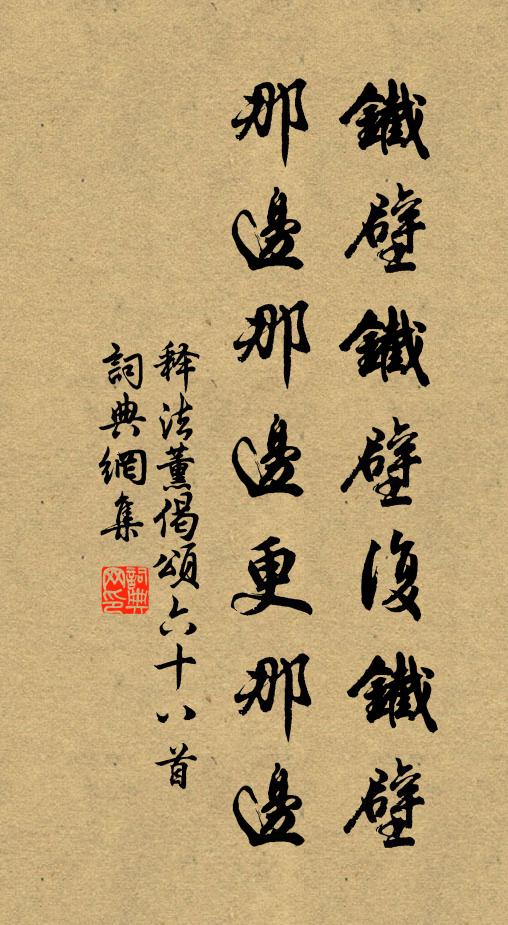 鐵壁鐵壁復鐵壁
那邊那邊更那邊
释法薰偈頌六十八首
詞典網集
詞典网印